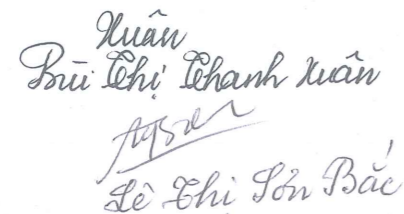 Xuân
Bùi Thị Thanh Xuân
Lê Thi Sơn Bắc